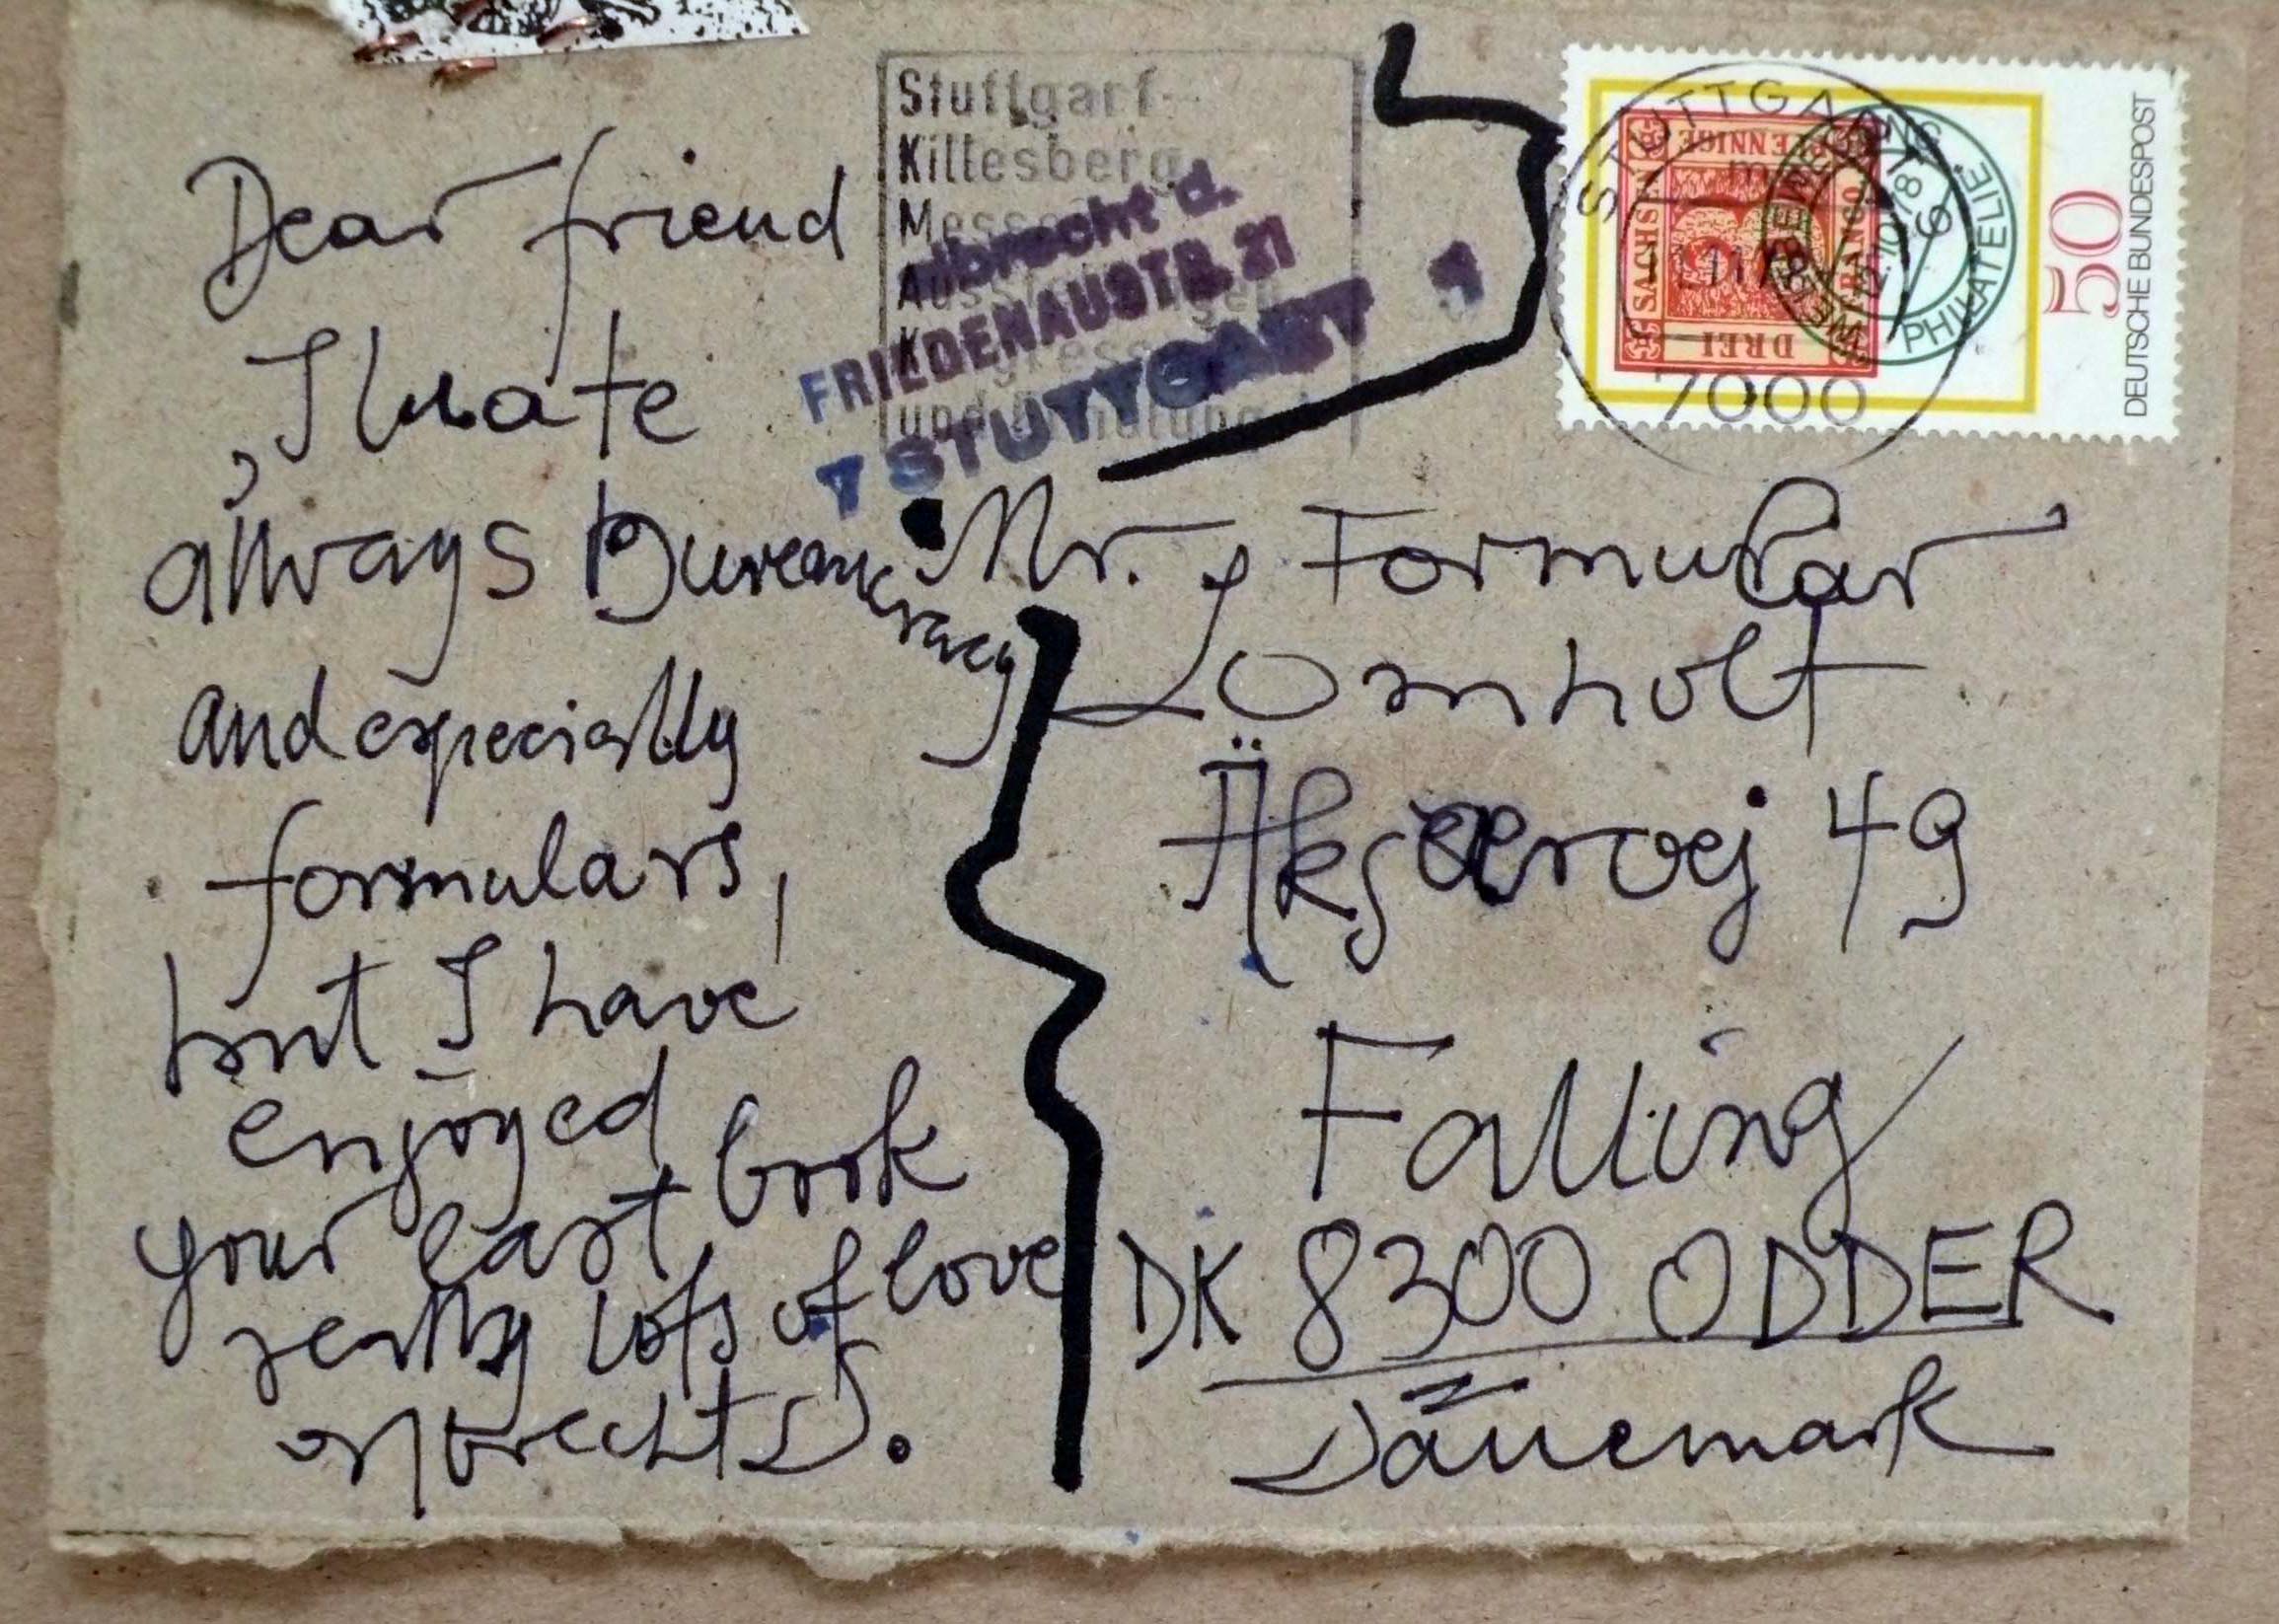 Dear friend
I hate
allways Bureaucracy
and especially
formulars,
but I have
enjoyed
your last book
really lots of love
albrecht D.
Stuttgart-
Killesberg
Messe
Ausstellungen
Kongresse
und
albrecht d.
FRIEDENAUSTR. 21
7 STUTTGART 1
Mr. Formular
Lomholt
Äkjaervej 49
Falling
DK 8300 ODDER
Dänemark
STUTTGART
7000
SACHSEN
PFENNIGE
FRANCO
DREI
3
PHILATELIE
50
DEUTSCHE BUNDESPOST